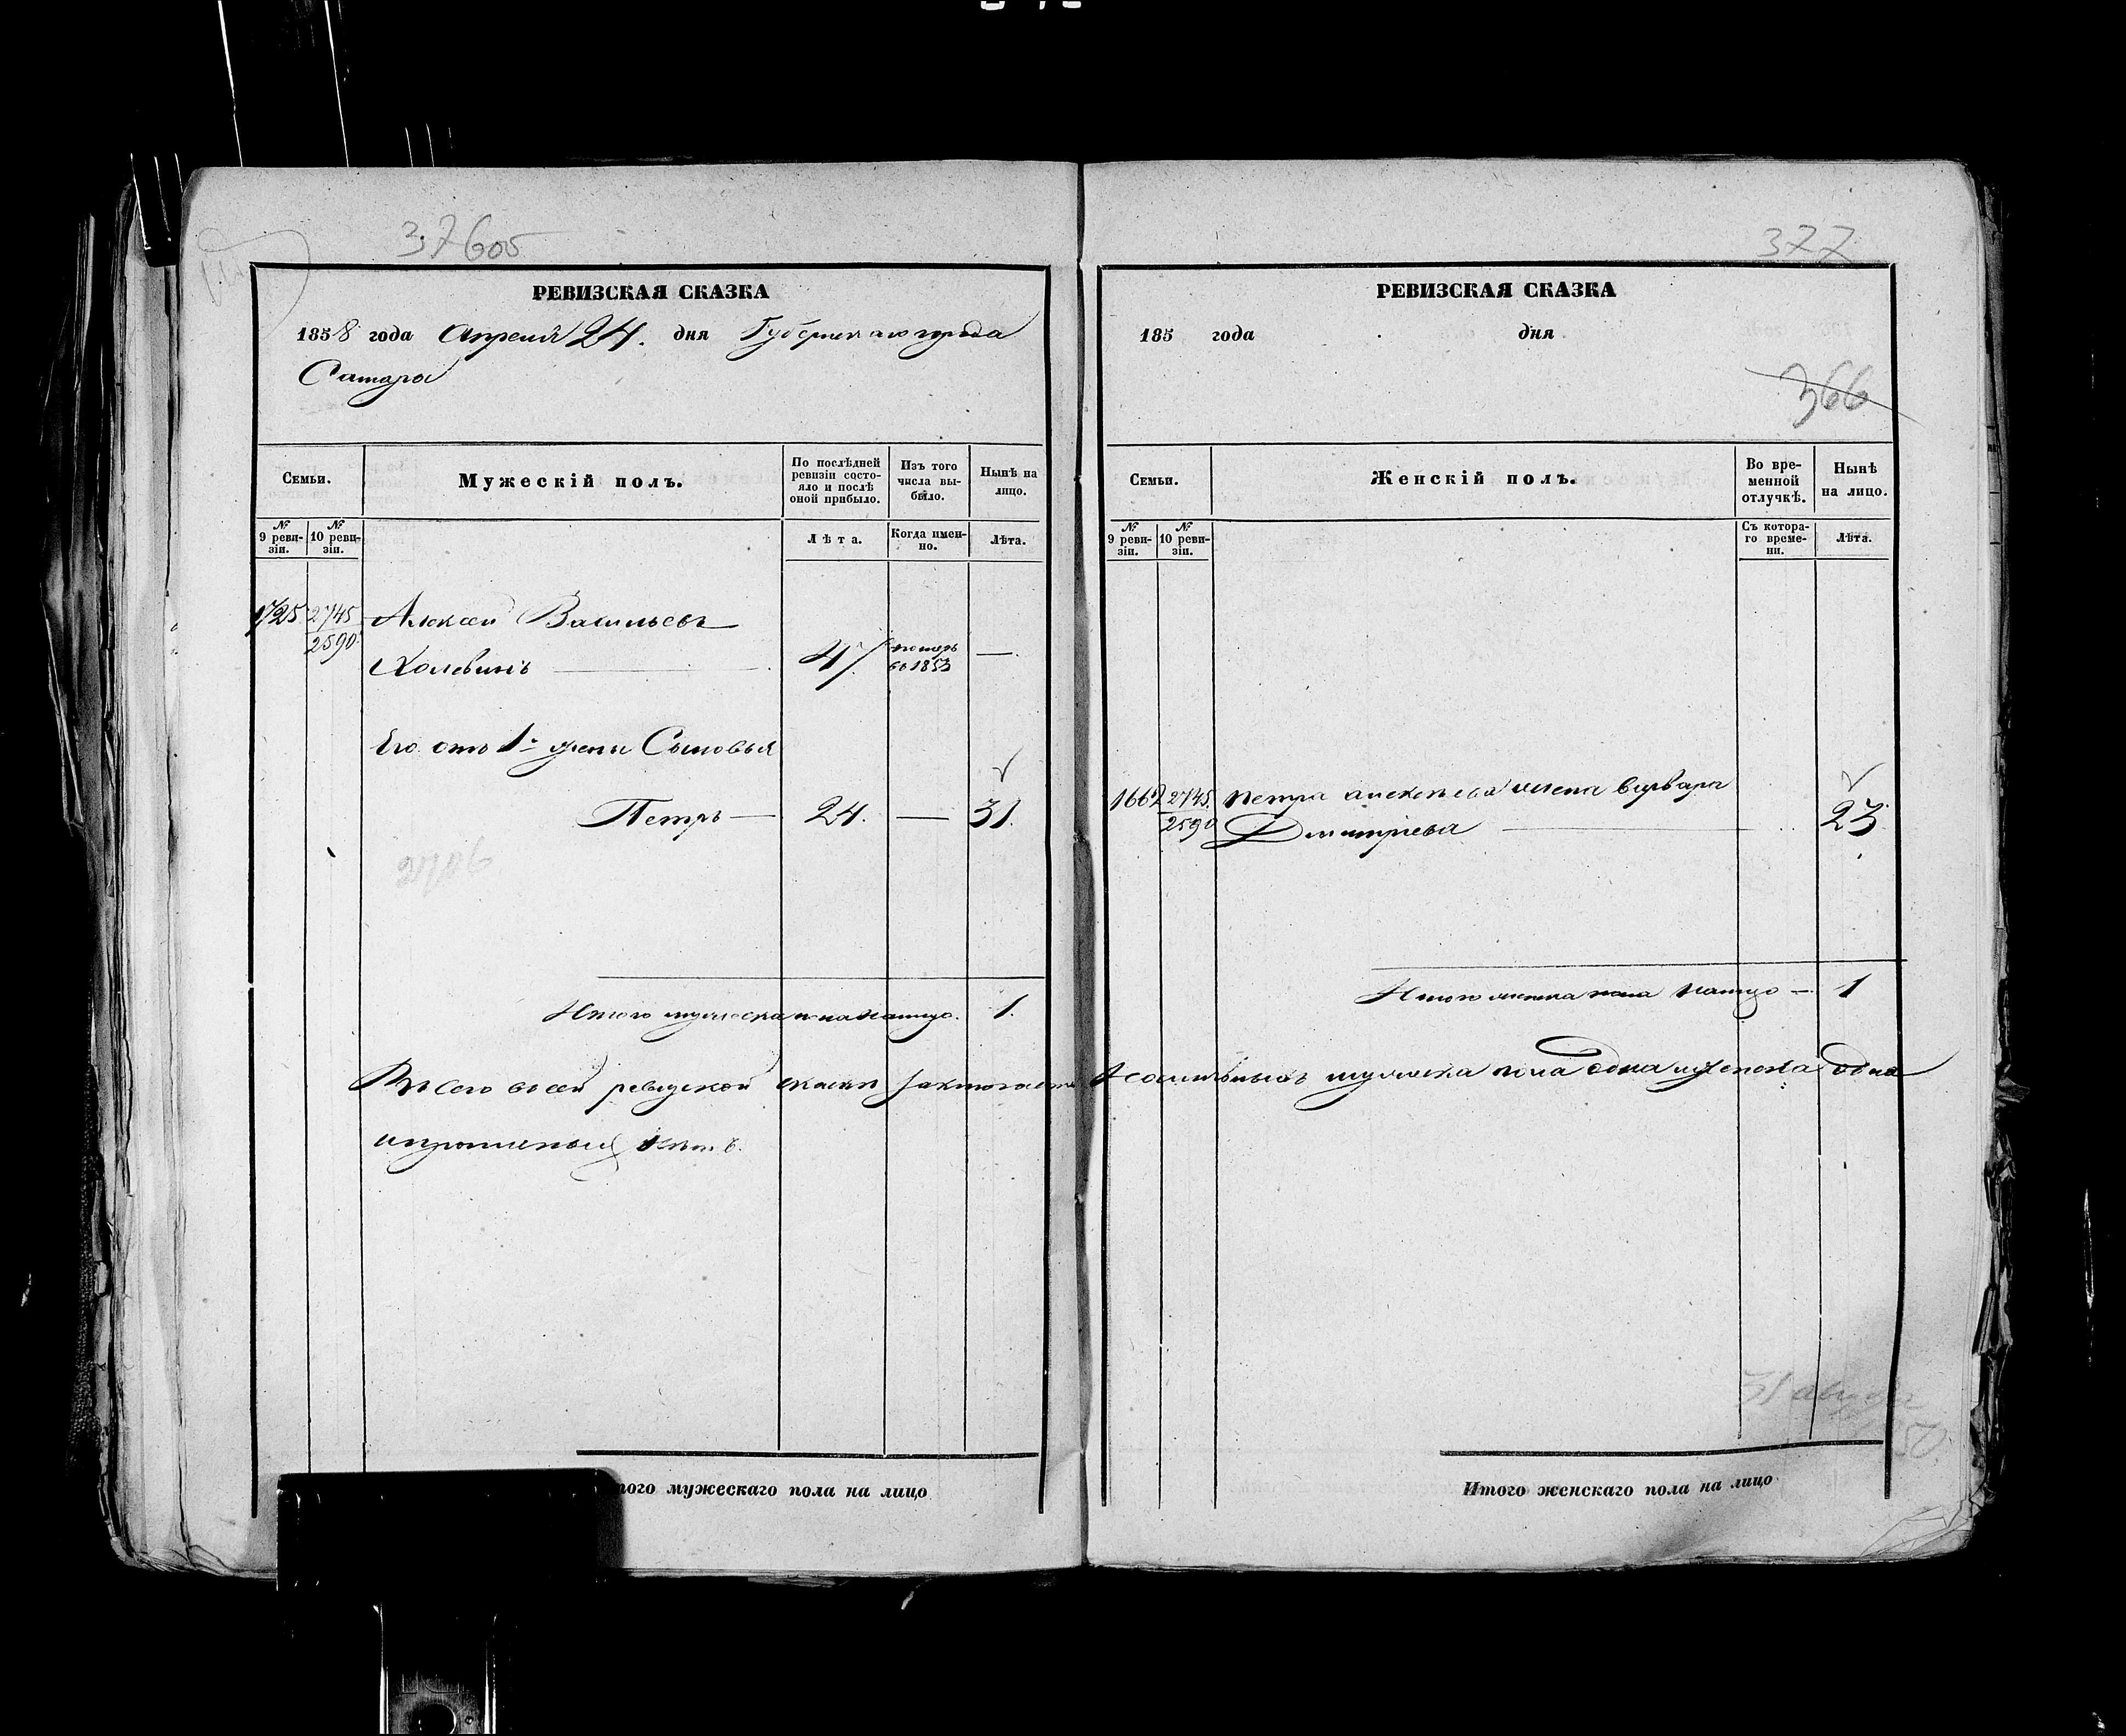 37605
РЕВИЗСКАЯ СКАЗКА
1858 года Апреля 24. дня Губернскаго города
Самары
Семьи.
Мужескій полъ.
По послѣдней ревизіи состояло и послѣ оной прибыло.
Изъ того числа выбыло.
Нынѣ на лицо.
№ 9 ревизіи.
№ 10 ревизіи.
Лѣта.
Когда именно.
Лѣта.
1725 2745 Алексей Васильевъ
2590
Холевинъ 47 померъ въ 1853 —
Его отъ 1й жены Сыновья
Петръ — 24. — 31.
2706
Итого мужеска пола налицо. 1.
377
РЕВИЗСКАЯ СКАЗКА
185 года дня
366
Семьи.
Женскій полъ.
Во временной отлучкѣ.
Нынѣ на лицо.
№ 9 ревизіи.
№ 10 ревизіи.
Съ котораго времени.
Лѣта.
1662 2745. Петра Алексѣева жена Варвара
2590 Дмитриева 23.
Итого женска пола налицо — 1
Всего въ сей ревизской сказке мужеска пола одна и женска одна
Итого мужескаго пола на лицо
Итого женскаго пола на лицо